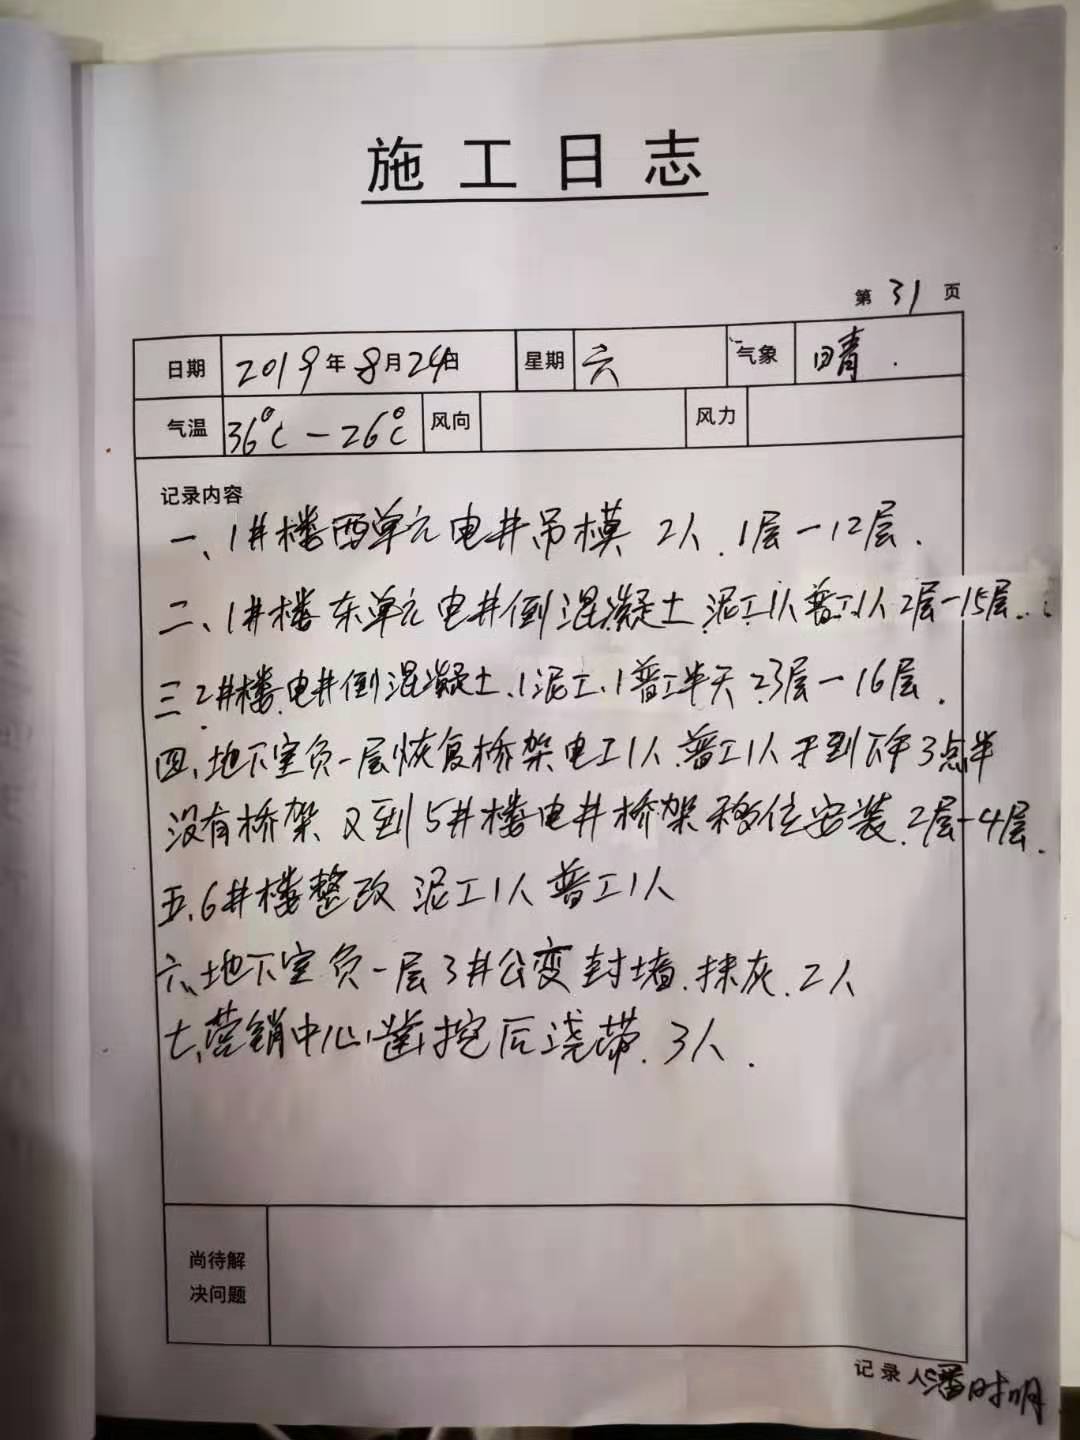 施工日志
第 31 页
日期 2019年8月24日 星期 六 气象 晴.
气温 36℃-26℃ 风向 风力
记录内容
一、1井楼西单元电井吊模 2人.1层-12层.
二、1井楼东单元电井倒混凝土 泥工1人普工1人2层-15层.
三2井楼电井倒混凝土、1泥工、1普工半天 23层-16层.
四、地下室负一层恢复桥架电工1人.普工1人 干到下午3点半
没有桥架 又到5井楼电井桥架移位安装.2层-4层.
五、6井楼整改 泥工1人普工1人
六、地下室负一层3井公变封墙.抹灰.2人
七、营销中心凿挖后浇带.3人.
尚待解
决问题
记录人潘时明